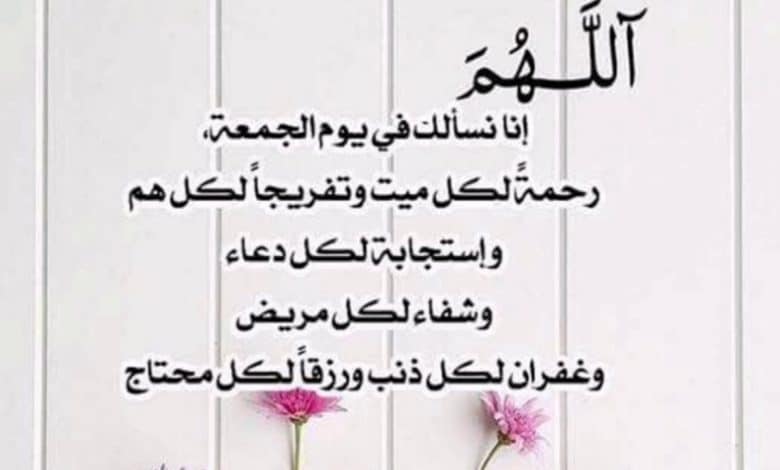 اَللَّـهُمَ
إنا نسألك في يوم الجمعة،
رحمةً لكل ميت وتفريجاً لكل هم
وإستجابة لكل دعاء
وشفاء لكل مريض
وغفران لكل ذنب ورزقاً لكل محتاج